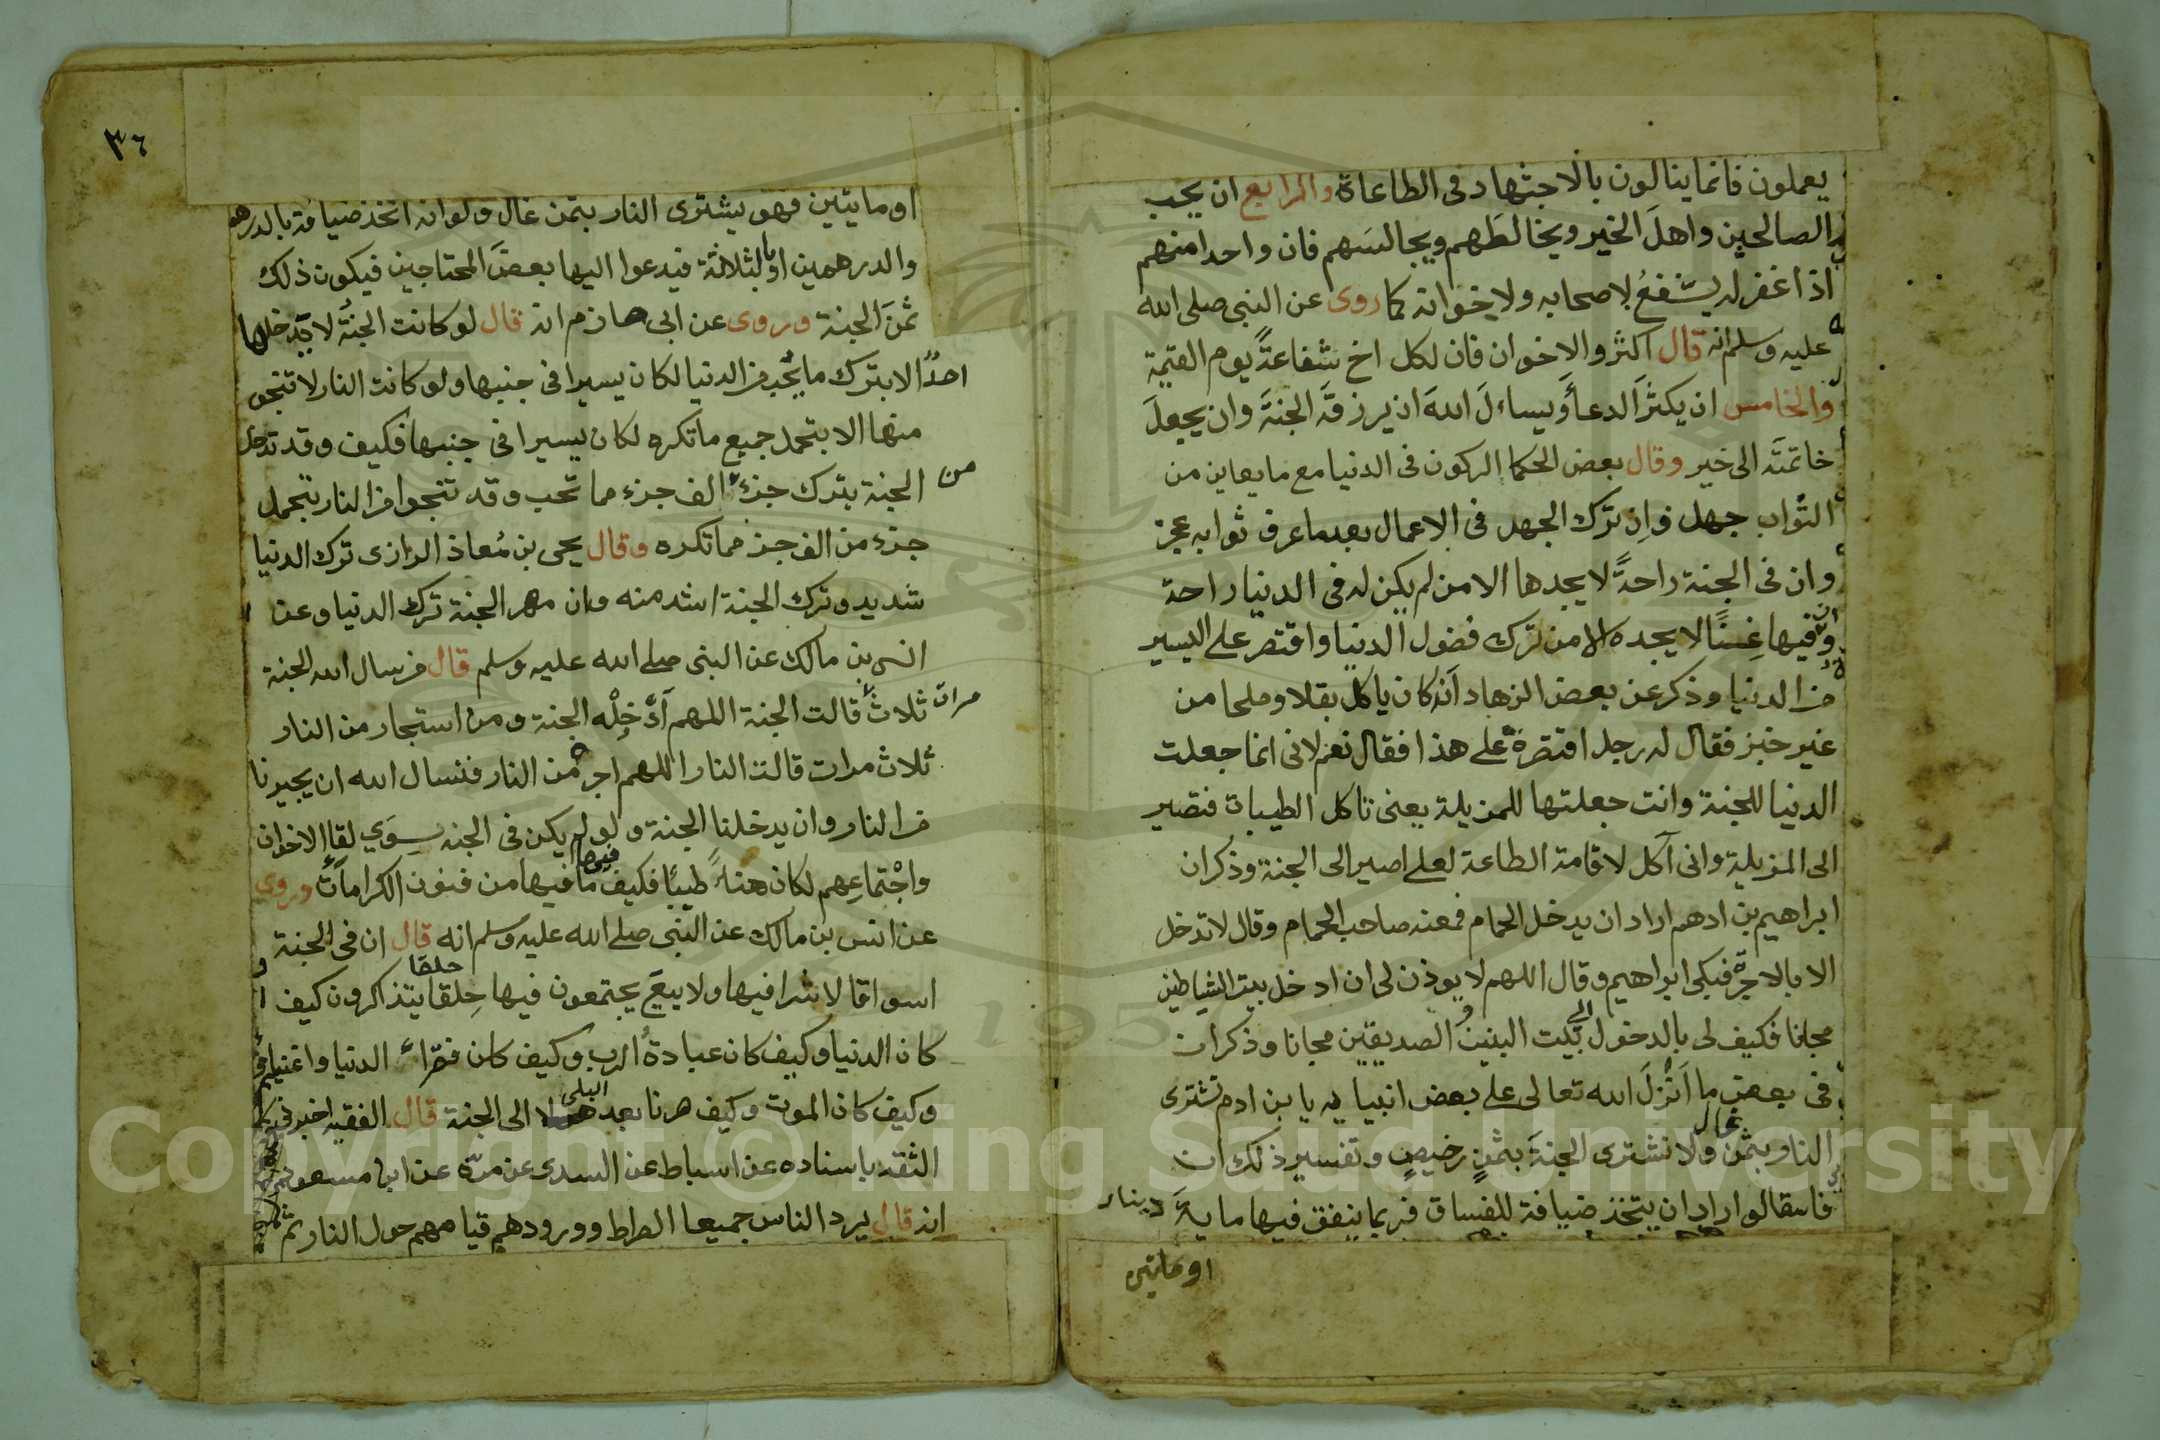 يعملون فانما ينالون بالاجتهاد فى الطاعاة والرابع ان يحب
الصالحين واهلَ الخير ويخالطَهم ويجالسَهم فان واحدا منهم
اذا غفر له يشفعُ لاصحابه ولاخوانه كما روى عن النبى صلى الله
عليه وسلم انه قال اكثروا الاخوان فان لكل اخ شفاعةً يوم القيمة
والخامس ان يكثرَ الدعأ ويساءلَ اللهَ ان يرزقه الجنةَ وان يجعلَ
خاتمتَه الى خير وقال بعض الحكما الركون فى الدنيا مع ما يعاين من
الثواب جهل وان ترك الجهد فى الاعمال بعد ما عرف ثوابه عجز
وان فى الجنة راحةً لا يجدها الا من لم يكن له فى الدنيا راحة
وان فيها غِنًا لا يجده الا من ترك فضول الدنيا واقتصر على اليسير
من الدنيا وذكر عن بعض الزهاد انه كان ياكل بقلا وملحا من
غير خبز فقال له رجل اقتصرة على هذا فقال نعم لانى انما جعلت
الدنيا للجنة وانت جعلتها للمزبلة يعنى تاكل الطيبات فتصير
الى المزبلة وانى آكل لاقامة الطاعة لعلى اصير الى الجنة وذكر ان
ابراهيم بن ادهم اراد ان يدخل الحمام فمعنه صاحب الحمام وقال لا تدخل
الا بالاجرة فبكى ابراهيم وقال اللهم لا يوذن لى ان ادخل بيت الشياطين
مجانا فكيف لى بالدخول الى بيت النبين والصديقين مجانا وذكر ان
فى بعض ما اَنْزلَ الله تعالى على بعض انبيايه يا بن ادم تشترى
النار بثمن غال ولا تشترى الجنةَ بثمنٍ رخيصٍ وتفسير ذلك ان
فاسقا لو اراد ان يتخذ ضيافة للفساق فربما ينفق فيها مايةَ دينار
او مايتين
٣٦
او مايتين فهو يشترى النار بثمن غال ولو انه اتخذ ضيافة بالدرهم
والدرهمين او بالثلاثة فيدعوا اليها بعضَ المحتاجين فيكون ذلك
ثمنَ الجنة وروى عن ابى حازم انه قال لو كانت الجنةُ لا يدخلها
احدٌ الا بترك ما يحب من الدنيا لكان يسيرا فى جنبها ولو كانت النار لا تنجو
منها الا بتحمل جميع ما تكره لكان يسيرا فى جنبها فكيف وقد تدخل
الجنة بترك جزء من الف جزء مما تحب وقد تنجوا من النار بتحمل
جزء من الف جز مما تكره وقال يحى بن مُعاذ الرازى ترك الدنيا
شديد وترك الجنة اشد منه وان مهر الجنة ترك الدنيا وعن
انس بن مالك عن النبى صلى الله عليه وسلم قال من سال الله الجنة
ثلاث مرات قالت الجنة اللهم اَدْخِلْه الجنة ومن استجار من النار
ثلاث مرات قالت النار اللهم اجره من النار فنسال الله ان يجيرنا
من النار وان يدخلنا الجنة ولو لم يكن فى الجنه سِوَي لقا الاخوان
واجْتماعِهم لكان هنا طيبًا فكيف ما فيها فيها من فنون الكرامات وروى
عن انس بن مالك عن النبى صلى الله عليه وسلم انه قال ان فى الجنة
اسواقا لا شرا فيها ولا بيعَ يجتمعون فيها حِلقا حلقا يتذاكرون كيف
كان الدنيا وكيف كان عبادةُ الرب وكيف كان فقراء الدنيا واغنياوها
وكيف كان الموت وكيف صرنا بعد البلى الى الجنة قال الفقيه اخبرنى
الثقه باسناده عن اسباط عن السدى عن مرّه عن ابن مسعود
انه قال يرد الناس جميعا الصراط وورودهم قيامهم حول النار ثم